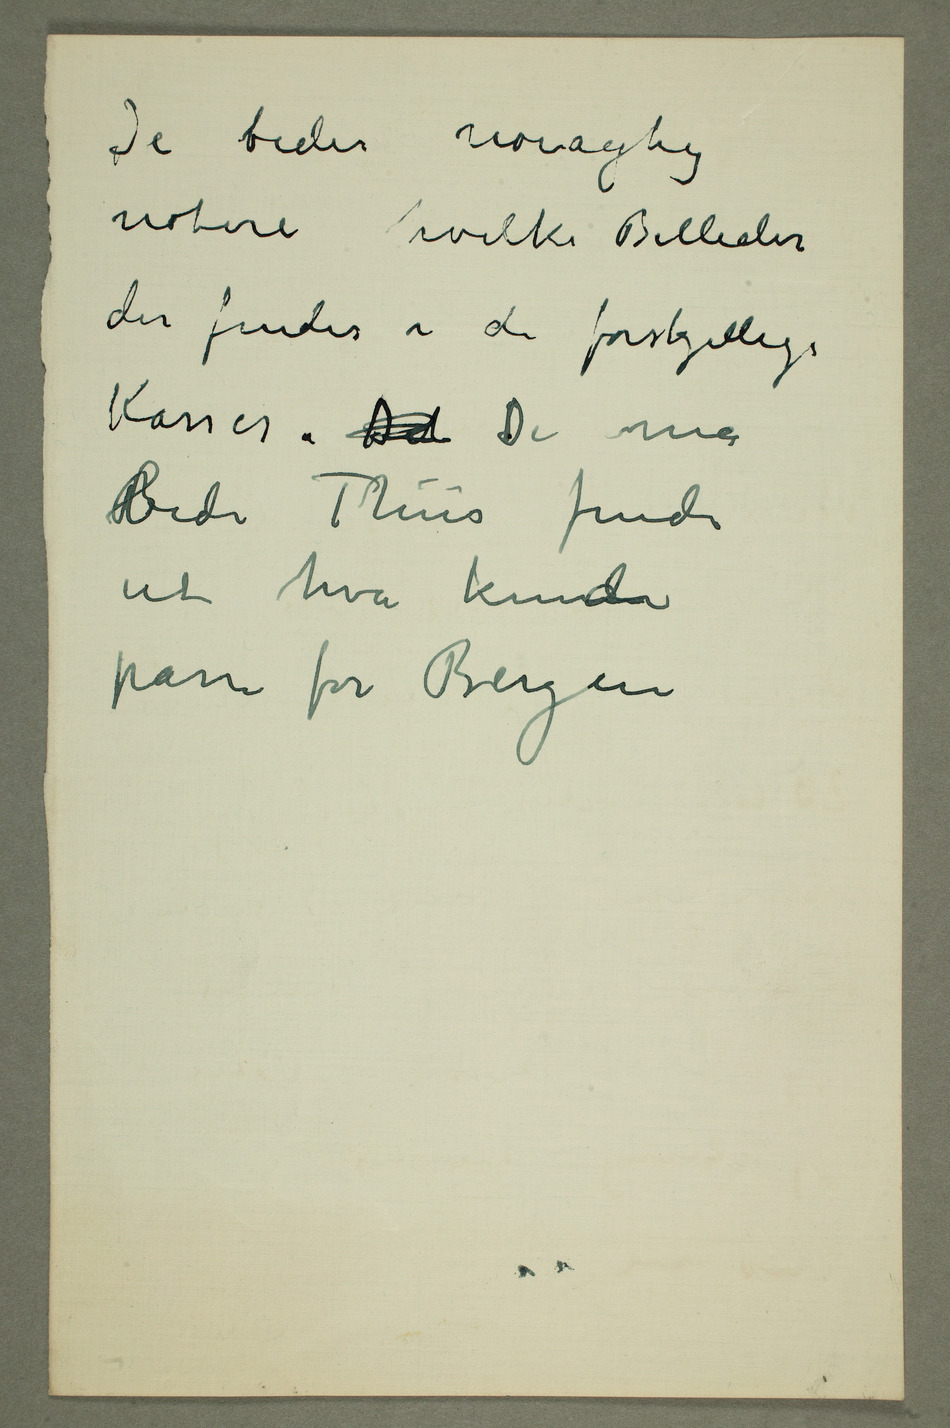 De beder nøiagtig
notere hvilke Billeder
der findes i de forskjellige
Kasser. Det De må
Bede Thiis finde
ut hva kunde
passe for Bergen